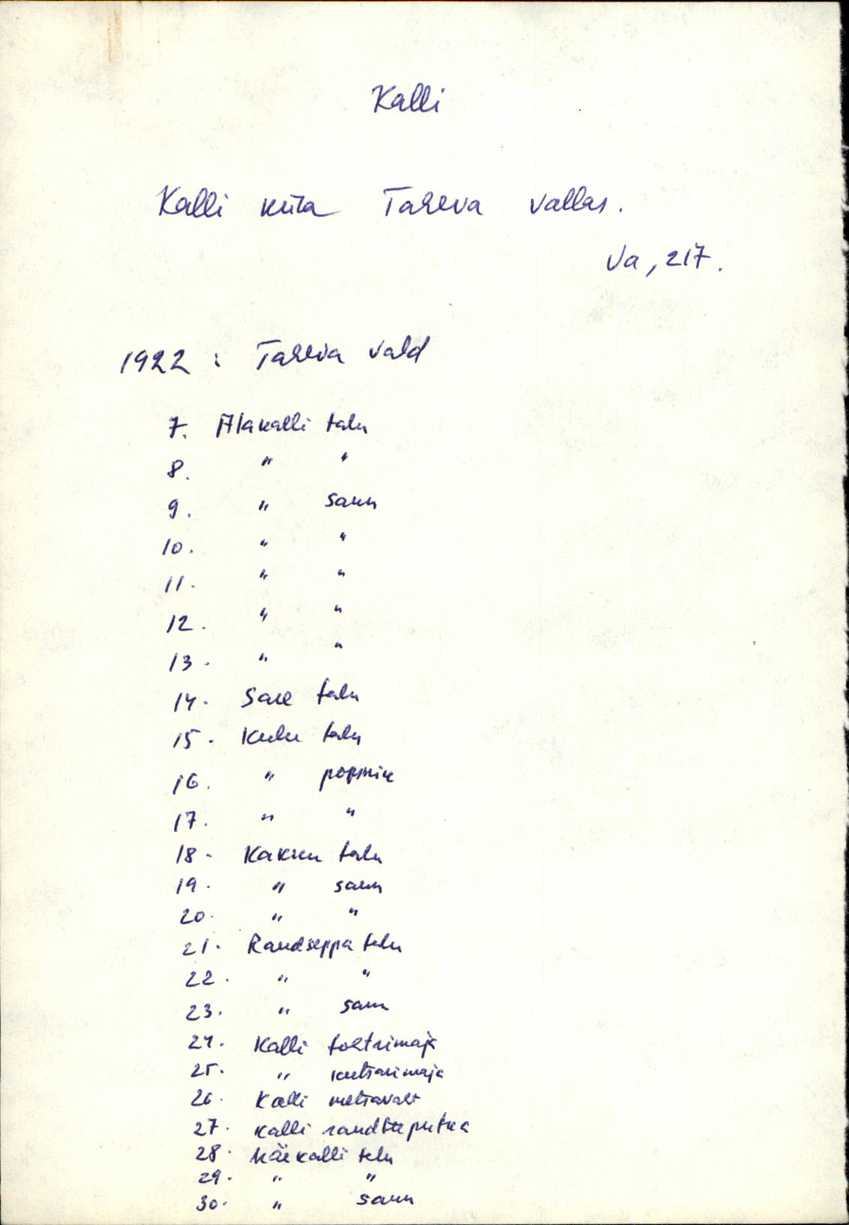 Kalli
Kalli küla Tareva vallas.
Va, 217.
1922 : Tareva vald
7. Alakalli talu
8. " "
9. " saun
10. " "
11. " "
12. " "
13. " "
14. Saue talu
15. Kulu talu
16. " popsnik
17. " "
18. Kaksu talu
19. " saun
20. " "
21. Raudseppa talu
22. " "
23. " saun
24. Kalli tohtrimaja
25. " kutsarimaja
26. Kalli metsavaht
27. Kalli raudteeputka
28. Mäekalli talu
29. " "
30. " saun